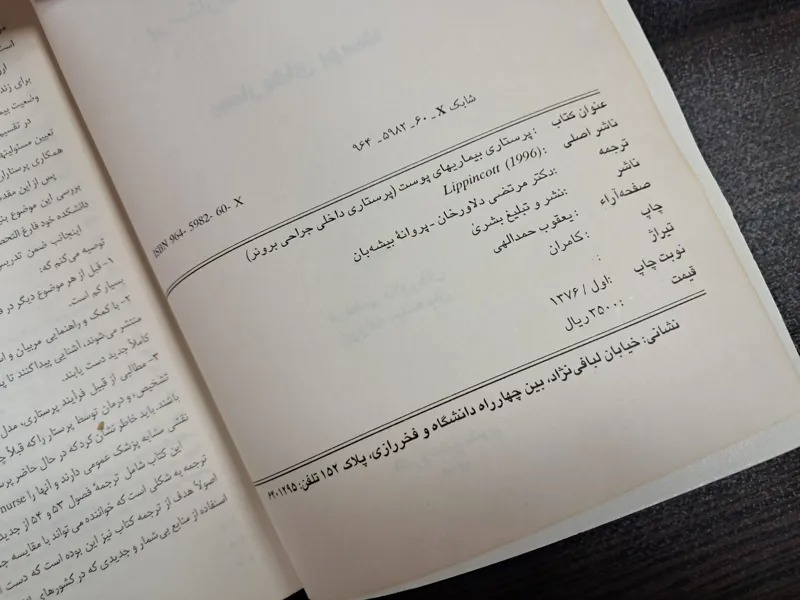 شابک X ـ ۶۰ ـ ۵۹۸۲ ـ ۹۶۴
ISBN 964- 5982- 60- X
عنوان کتاب :پرستاری بیماریهای پوست (پرستاری داخلی جراحی برونر)
ناشر اصلی :Lippincott (1996)
ترجمه :دکتر مرتضی دلاورخان - پروانهٔ بیشه‌بان
ناشر :نشر و تبلیغ بشری
صفحه‌آراء :یعقوب حمدالهی
چاپ :کامران
تیراژ :
نوبت چاپ :اول / ۱۳۷۶
قیمت :۳۵۰۰ ریال
نشانی: خیابان لبافی‌نژاد، بین چهارراه دانشگاه و فخررازی، پلاک ۱۵۲ تلفن: ۶۴۰۱۲۹۵
است
برای زند
وضعیت بیم
در تقسیم
تعیین مسئولیتها
همکاری پرستاران
پس از این مقدم
بررسی این موضوع بنی
دانشکده خود فارغ التحص
اینجانب ضمن تدریس
توصیه می‌کنم که:
۱- قبل از هر موضوع دیگر در و
بسیار کم است.
۲- با کمک و راهنمایی مربیان و اس
منتشر می‌شوند، آشنایی پیدا کنند تا بت
کاملاً جدید دست یابند.
۳- مطالبی از قبیل فرآیند پرستاری، مدل
تشخیص، و درمان توسط پرستار را که قبلاً چ
باشند. باید خاطر نشان کرد که در حال حاضر پرس
نقشی مشابه پزشک عمومی دارند و آنها را nurse
این کتاب شامل ترجمهٔ فصول ۵۳ و ۵۴ از جدید
ترجمه به شکلی است که خواننده می تواند با مقایسه ج
اصولاً هدف از ترجمه کتاب نیز این بوده است که دست ا
استفاده از منابع بی‌شمار و جدیدی که در کشورهای